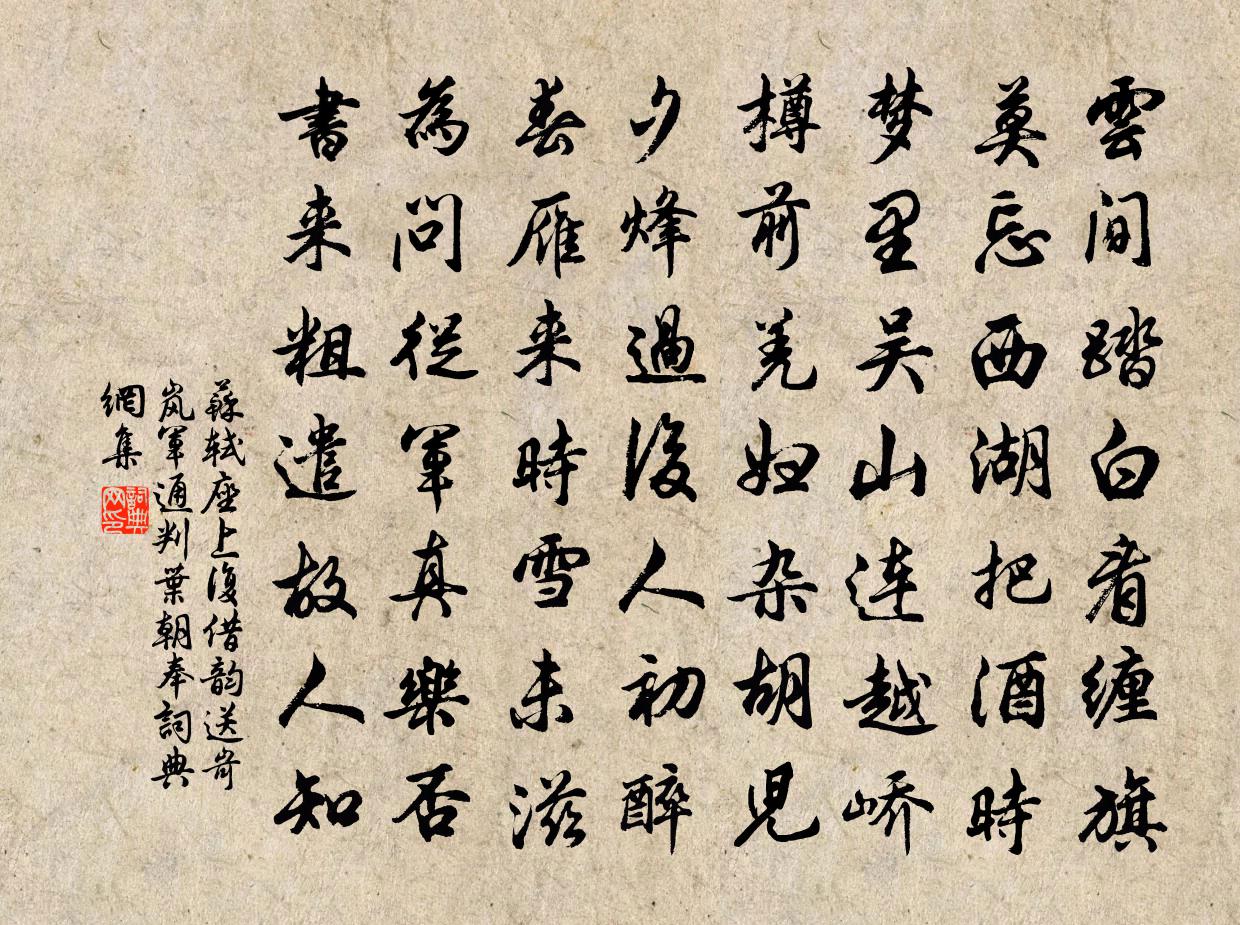 雲間踏白看缠旗
莫忘西湖把酒時
梦里吴山连越峤
樽前羌妇杂胡児
夕烽過後人初醉
春雁来時雪未滋
為問從軍真樂否
書来粗遣故人知
蘇軾座上復借韵送岢
岚軍通判葉朝奉詞典
網集
詞典
网印